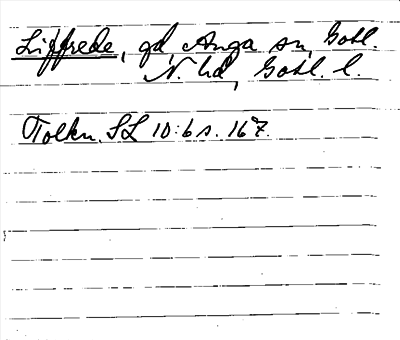 Liffrede, gd, Anga sn, Gotl.
N. hd, Gotl. l.
Tolkn. SL 10:6 s. 167.